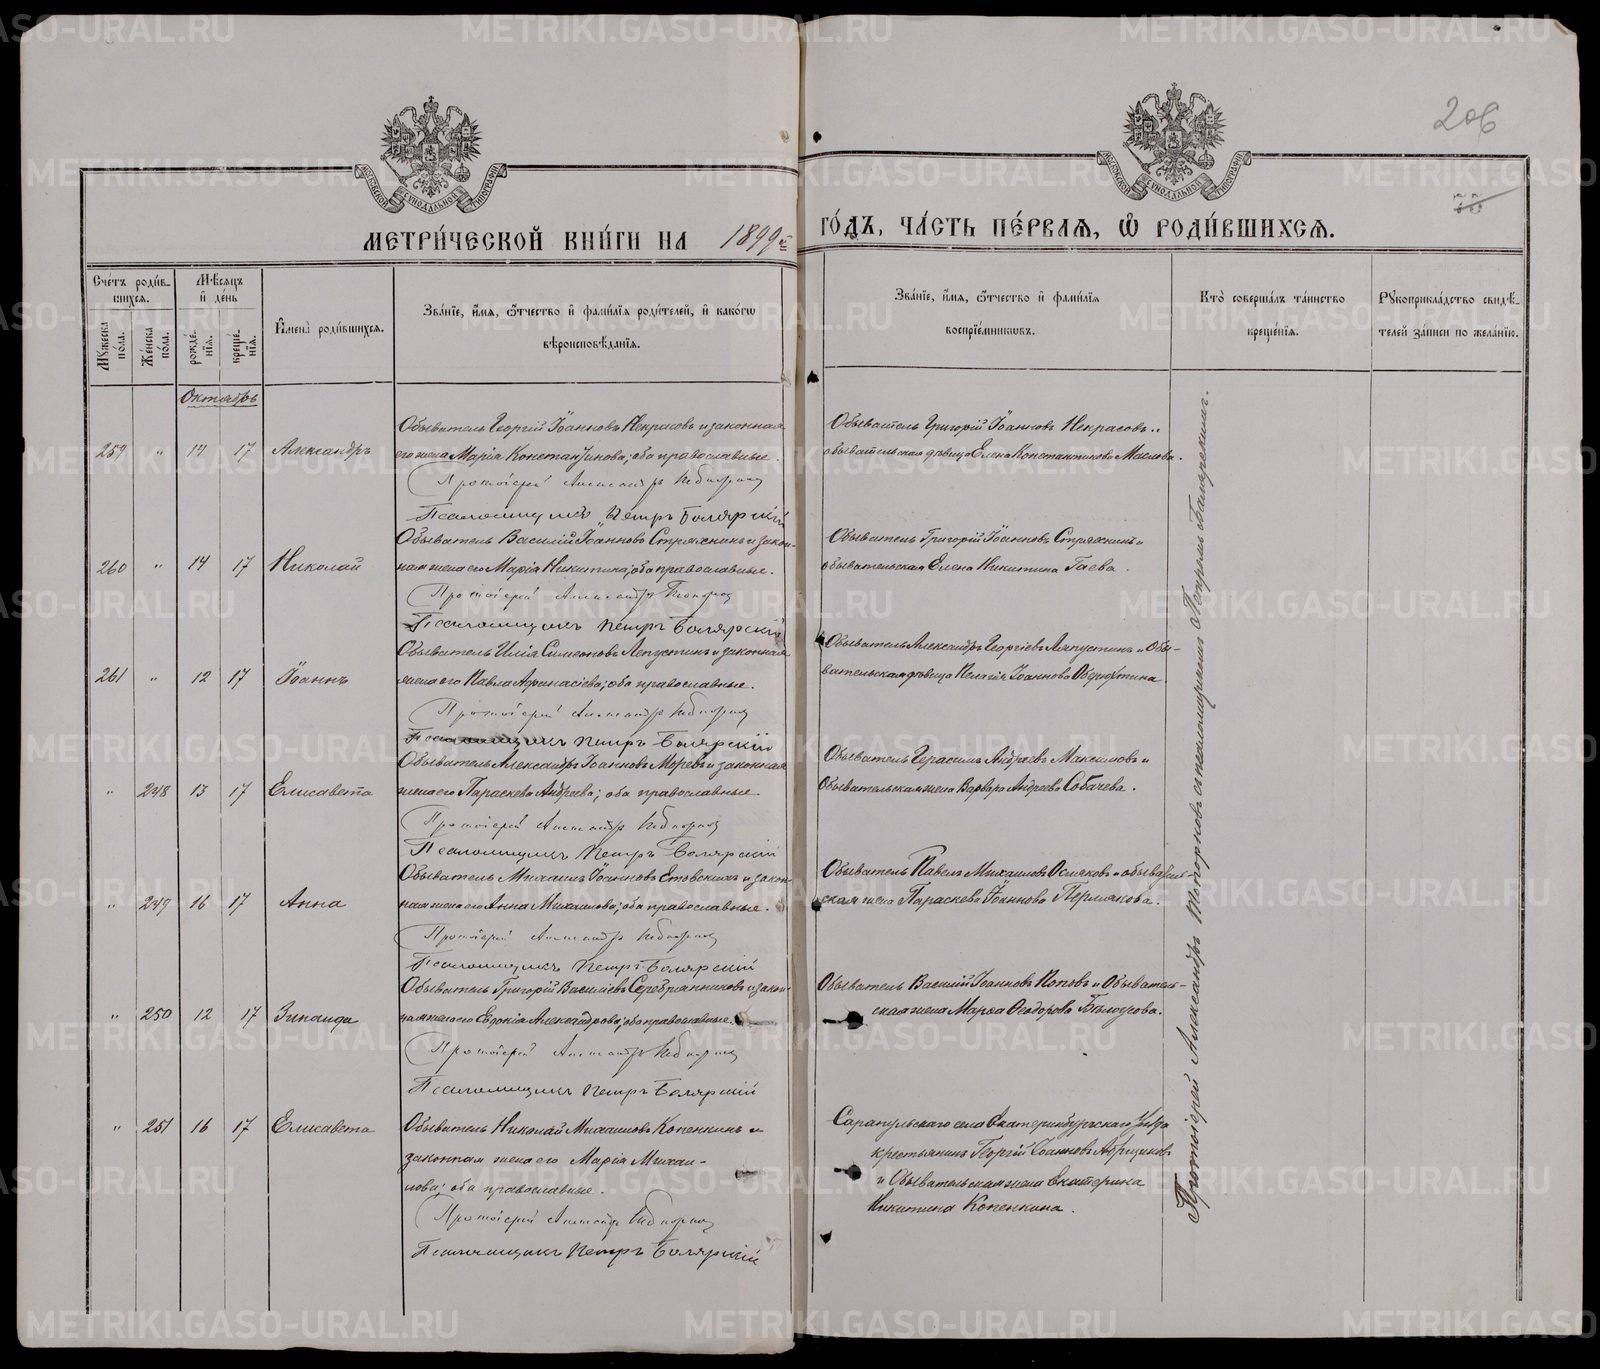 206
МЕТРИ́ЧЕСКОЙ КНИ́ГИ НА 1899й ГО́ДЪ, ЧА́СТЬ ПЕ́РВАЯ, Ѡ РОДИ́ВШИХСЯ.
Счетъ роди́вшихся.
Мꙋжеска по́ла.
Же́нска по́ла.
Мѣсяцъ и де́нь
рожде́нїя.
креще́нїя.
Имена̀ роди́вшихся.
Зва́нїе, и́мя, ѻ҆́тчество и фами́лїя роди́телей, и како́гѡ вѣроисповѣ́данїя.
Зва́нїе, и́мя, ѻ҆́тчество и фами́лїя воспрїе́мникѡвъ.
Кто̀ соверша́лъ та́инство креще́нїя.
Рꙋкоприкла́дство свидѣ́телей за́писи по жела́нїю.
Октябрь
259 " 14 17 Александръ
Обыватель Георгій Іоанновъ Некрасовъ и законная
его жена Марія Константинова; оба православные.
Протоіерей Александръ
Псаломщикъ Петръ Боярскій
Обыватель Григорій Іоанновъ Некрасовъ и
обывательская дѣвица Елена Константинова Маслова.
260 " 14 17 Николай
Обыватель Василій Іоанновъ Стряхнинъ и закон-
ная жена его Марія Никитина; оба православные.
Протоіерей Александръ Топорковъ
Псаломщикъ Петръ Боярскій
Обыватель Григорій Іоанновъ Стряхнинъ и
обывательская Елена Никитина Гаева.
261 " 12 17 Іоаннъ
Обыватель Илія Симеоновъ Лапустинъ и законная
жена его Павла Афанасіева; оба православные.
Протоіерей Александръ
Псаломщикъ Петръ Боярскій
Обыватель Александръ Георгіевъ Лапустинъ и Обы-
вательская дѣвица Пелагія Іоаннова
" 248 13 17 Елисавета
Обыватель Александръ Іоанновъ Моревъ и законная
жена его Параскева Андреева; оба православные.
Протоіерей Александръ
Псаломщикъ Петръ Боярскій
Обыватель Герасимъ Андреевъ Максимовъ и
Обывательская жена Варвара Андреева Собачева.
" 249 16 17 Анна
Обыватель Михаилъ Іоанновъ и закон-
ная жена его Анна Михаилова; оба православные.
Протоіерей Александръ
Псаломщикъ Петръ Боярскій
Обыватель Павелъ Михаиловъ и обыватель-
ская жена Параскева Іоаннова Пермякова.
" 250 12 17 Зинаида
Обыватель Григорій Василіевъ Серебрянниковъ и закон-
ная жена его Евдокія Александрова; оба православные.
Протоіерей Александръ
Псаломщикъ Петръ Боярскій
Обыватель Василій Іоанновъ Поповъ и Обыватель-
ская жена Марѳа Ѳеодорова Бѣлоусова.
" 251 16 17 Елисавета
Обыватель Николай Михаиловъ Копенкинъ и
законная жена его Марія Михаи-
лова; оба православные.
Протоіерей Александръ
Псаломщикъ Петръ Боярскій
Сарапульскаго села Екатеринбургскаго уѣзда
крестьянинъ Георгій Іоанновъ
и Обывательская жена Екатерина
Никитина Копенкина.
Протоіерей Александръ Топорковъ съ псаломщикомъ Петромъ Боярскимъ.
METRIKI.GASO-URAL.RU